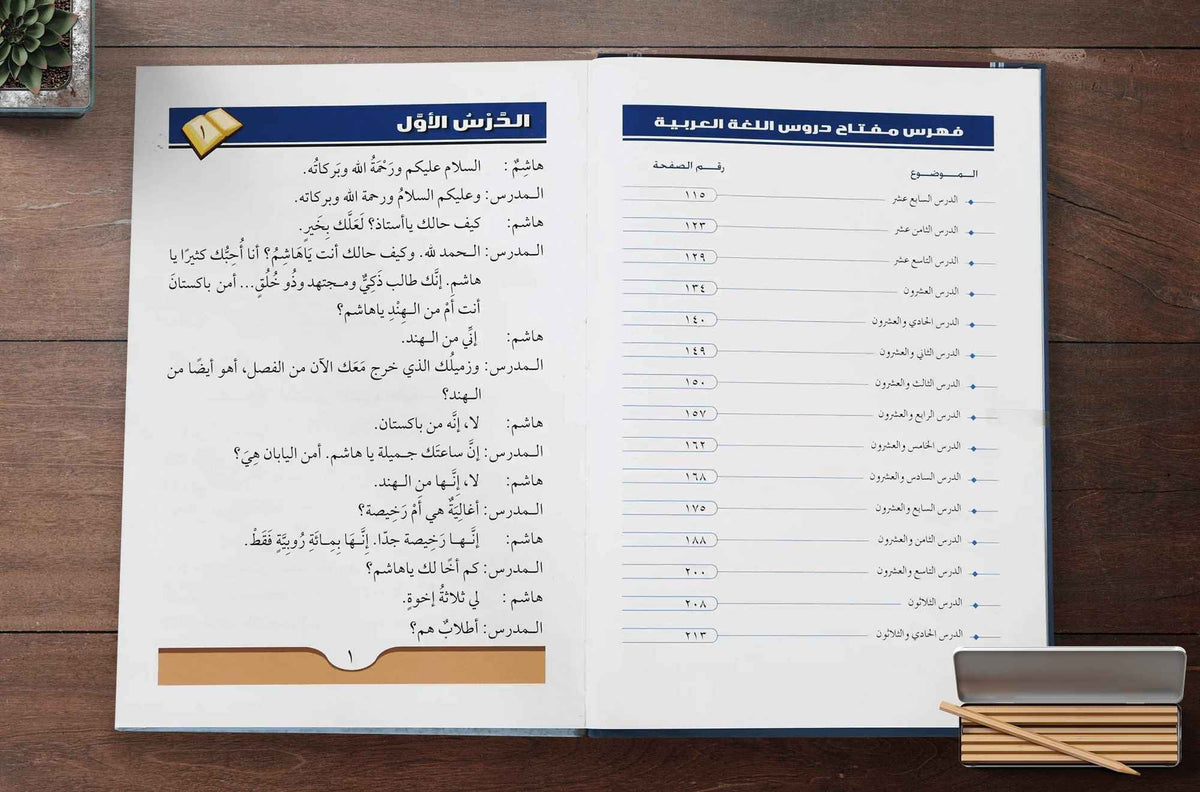 فهرس مفتاح دروس اللغة العربية
الـمـوضـــوع رقـم الصفحة
الدرس السابع عشر ١١٥
الدرس الثامن عشر ١٢٣
الدرس التاسع عشر ١٢٩
الدرس العشرون ١٣٤
الدرس الحادي والعشرون ١٤٠
الدرس الثاني والعشرون ١٤٩
الدرس الثالث والعشرون ١٥٠
الدرس الرابع والعشرون ١٥٧
الدرس الخامس والعشرون ١٦٢
الدرس السادس والعشرون ١٦٨
الدرس السابع والعشرون ١٧٥
الدرس الثامن والعشرون ١٨٨
الدرس التاسع والعشرون ٢٠٠
الدرس الثلاثون ٢٠٨
الدرس الحادي والثلاثون ٢١٣
الدَّرْسُ الأوَّل
١
هاشمٌ : السلام عليكم ورَحْمَةُ الله وبَركاتُه.
الـمدرس: وعليكم السلامُ ورحمة الله وبركاته.
هاشم: كيف حالك ياأستاذ؟ لَعَلَّك بِخَيرٍ.
الـمدرس: الـحمد لله. وكيف حالك أنت يَاهَاشِمُ؟ أنا أُحِبُّك كثيرًا يا
هاشم. إنَّك طالب ذَكِيٌّ ومـجتهد وذُو خُلُقٍ... أمن باكستانَ
أنت أَمْ من الـهِنْدِ ياهاشم؟
هاشم: إنِّي من الـهند.
الـمدرس: وزميلُك الذي خرج مَعَك الآن من الفصل، أهو أيضًا من
الـهند؟
هاشم: لا، إنَّه من باكستان.
الـمدرس: إنَّ ساعتَك جـميلة يا هاشم. أمن اليابان هِيَ؟
هاشم: لا، إنَّـها من الـهند.
الـمدرس: أغالِيَةٌ هي أَمْ رَخِيصة؟
هاشم: إنَّـهـا رَخِيصة جدّا. إنَّـهَا بِمِـائَةِ رُوبِيَّةٍ فَقَطْ.
الـمدرس: كم أخًا لك ياهاشم؟
هاشم : لي ثلاثةُ إخوةٍ.
الـمدرس: أطلابٌ هم؟
١